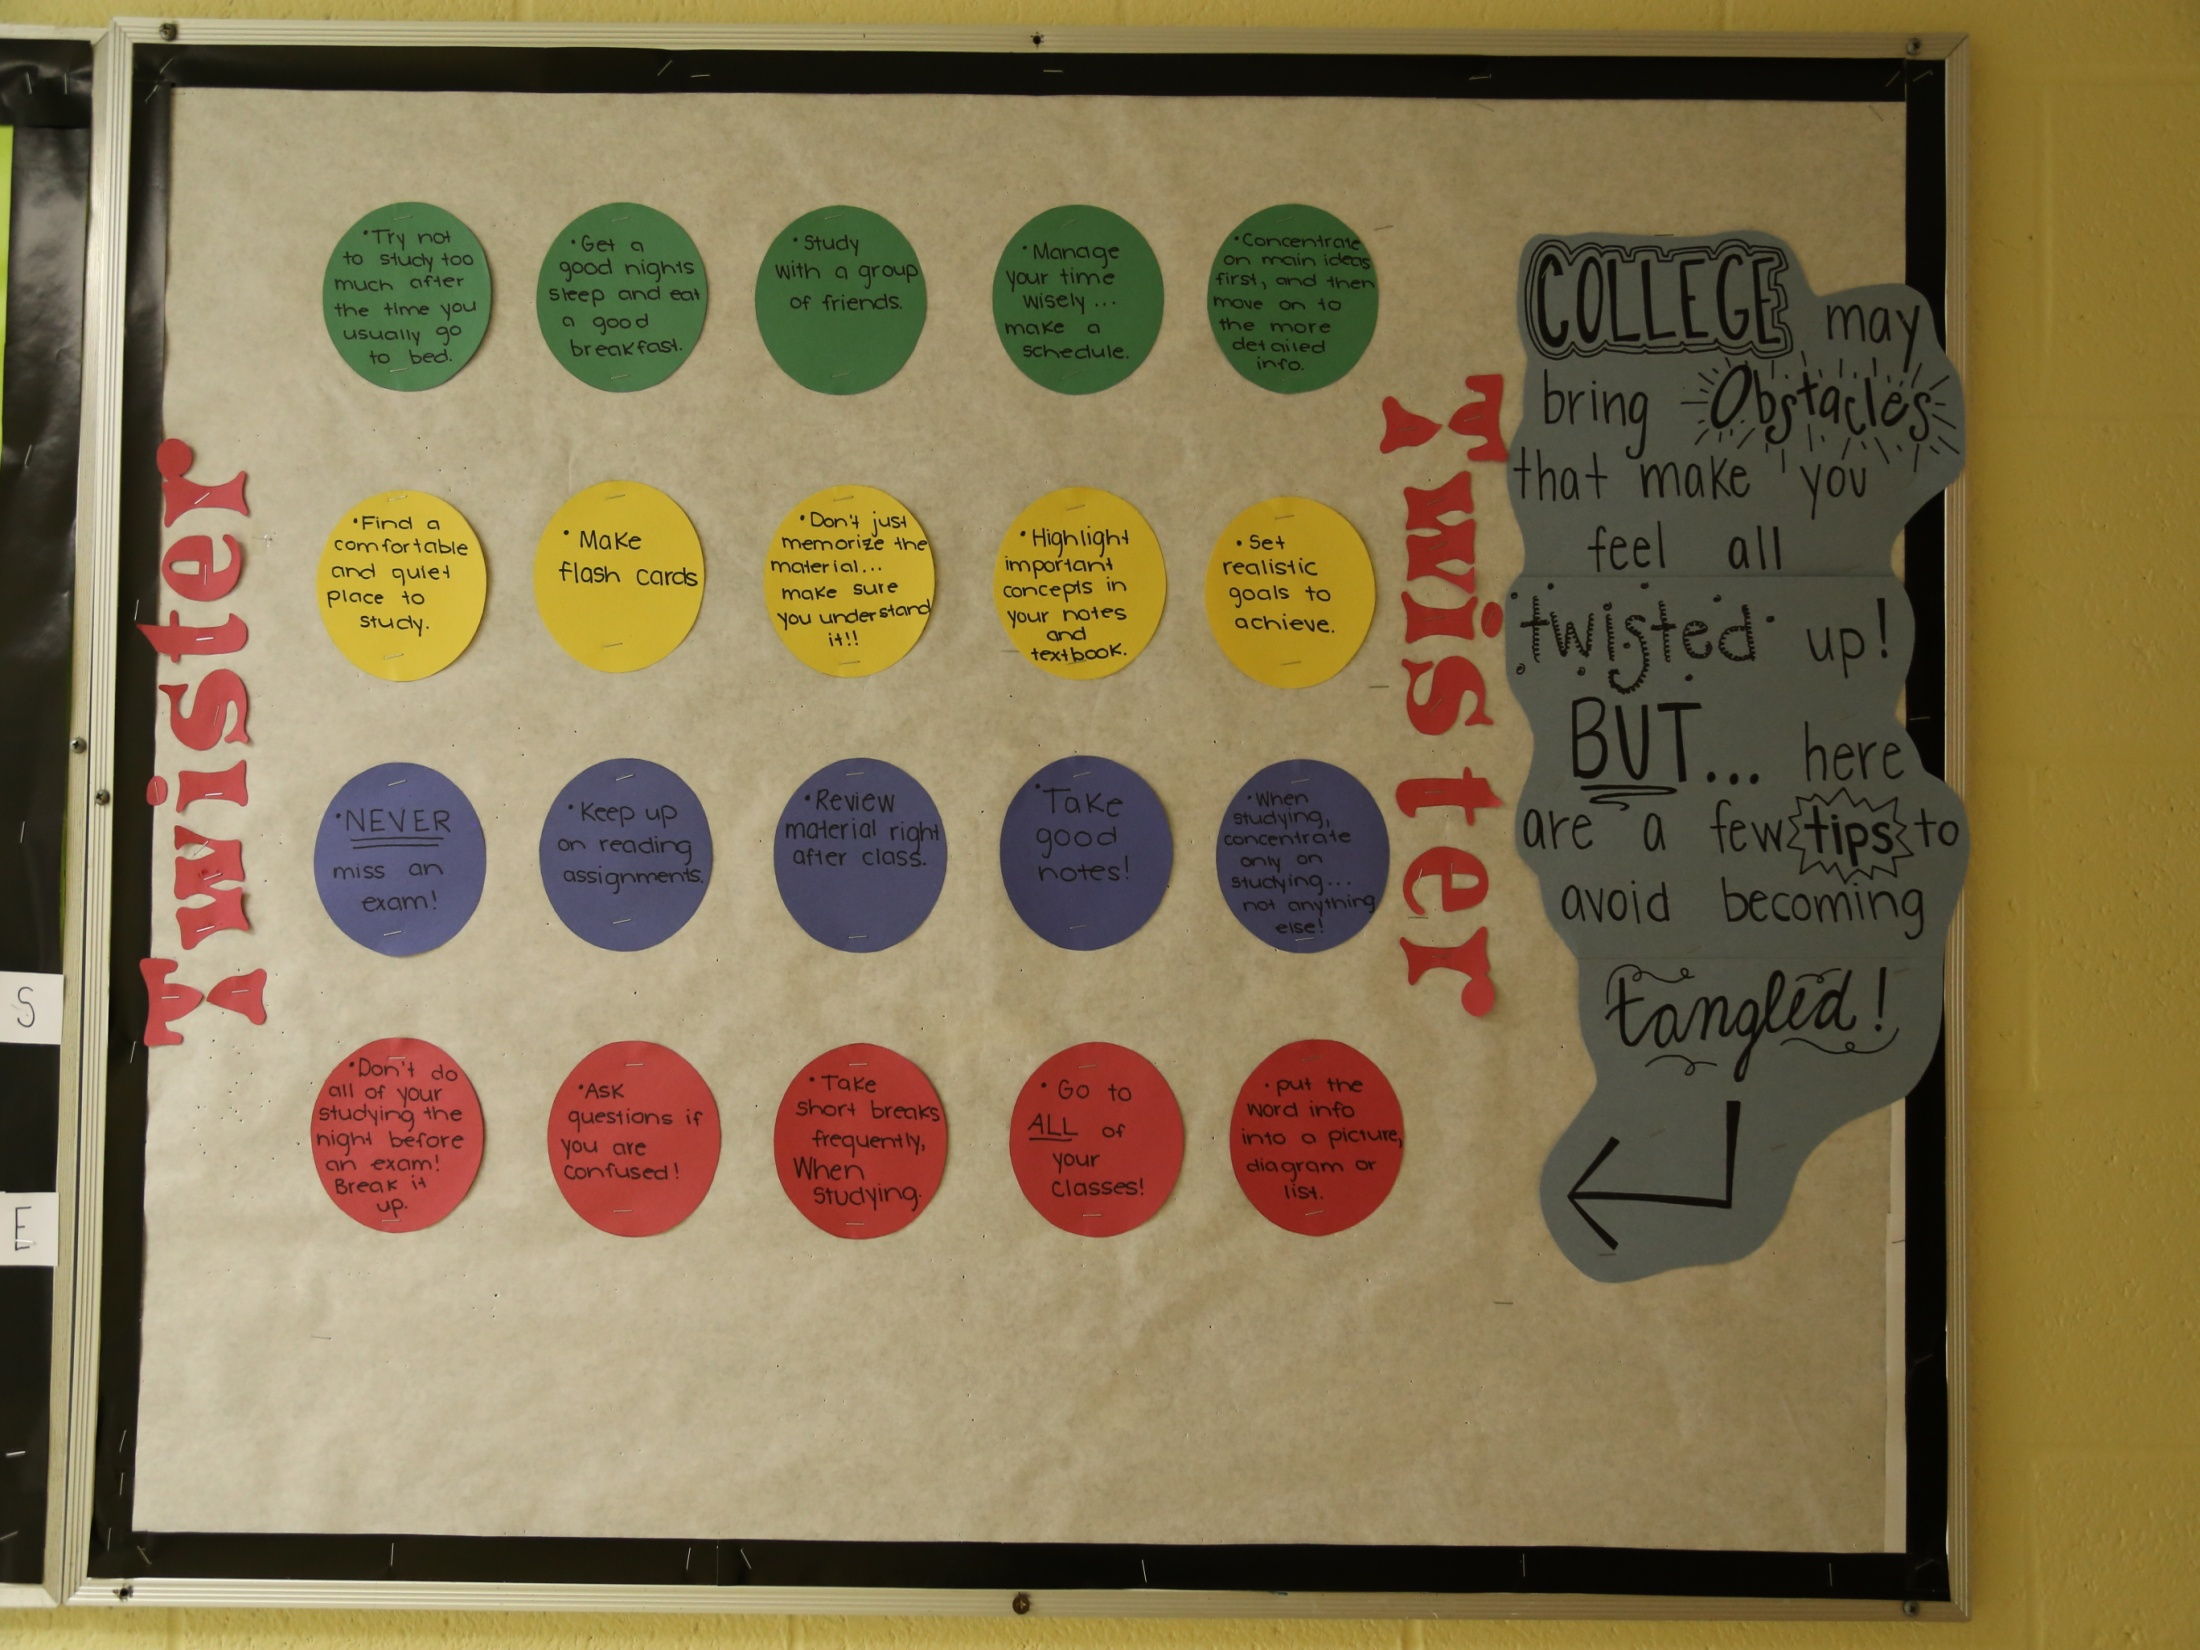 S
E
Twister
• Try not
to study too
much after
the time you
usually go
to bed.
• Get a
good nights
sleep and eat
a good
breakfast.
• Study
with a group
of friends.
• Manage
your time
wisely...
make a
schedule.
• Concentrate
on main ideas
first, and then
move on to
the more
detailed
info.
• Find a
comfortable
and quiet
place to
study.
• Make
flash cards
• Don't just
memorize the
material...
make sure
you understand
it!!
• Highlight
important
concepts in
your notes
and
textbook.
• Set
realistic
goals to
achieve.
• NEVER
miss an
exam!
• Keep up
on reading
assignments.
• Review
material right
after class.
• Take
good
notes!
• When
studying,
concentrate
only on
studying...
not anything
else!
• Don't do
all of your
studying the
night before
an exam!
Break it
up.
• Ask
questions if
you are
confused!
• Take
short breaks
frequently,
When
studying.
• Go to
ALL of
your
classes!
• put the
word info
into a picture,
diagram or
list.
Twister
COLLEGE may
bring Obstacles
that make you
feel all
twisted up!
BUT... here
are a few tips to
avoid becoming
tangled!